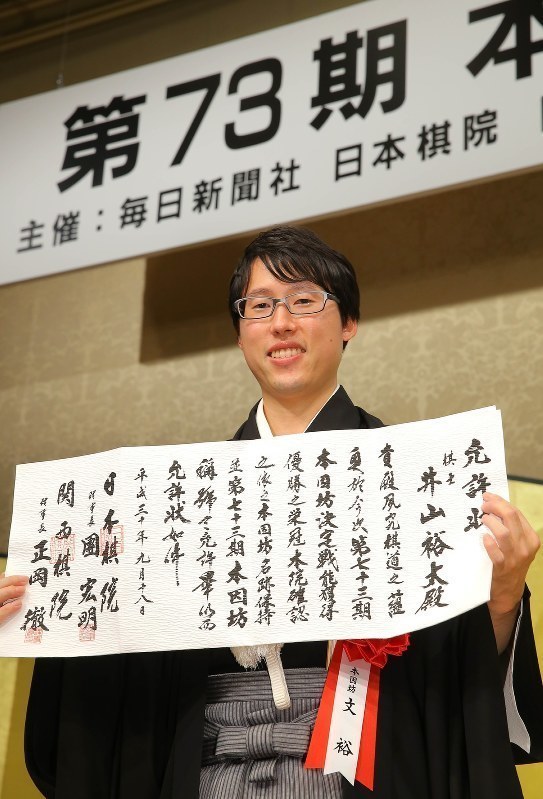 第73期 本
主催：毎日新聞社 日本棋院
免許状
棋士 井山裕太殿
貴殿夙究棋道之蘊
奥於今次第七十三期
本因坊決定戦能獲得
優勝之栄冠本院確認
之依之本因坊名跡保持
並第七十三期本因坊
称号々允許畢仍而
允許状如件
平成三十年九月十八日
日本棋院
理事長 團宏明
関西棋院
理事長 正岡徹
本因坊 文裕